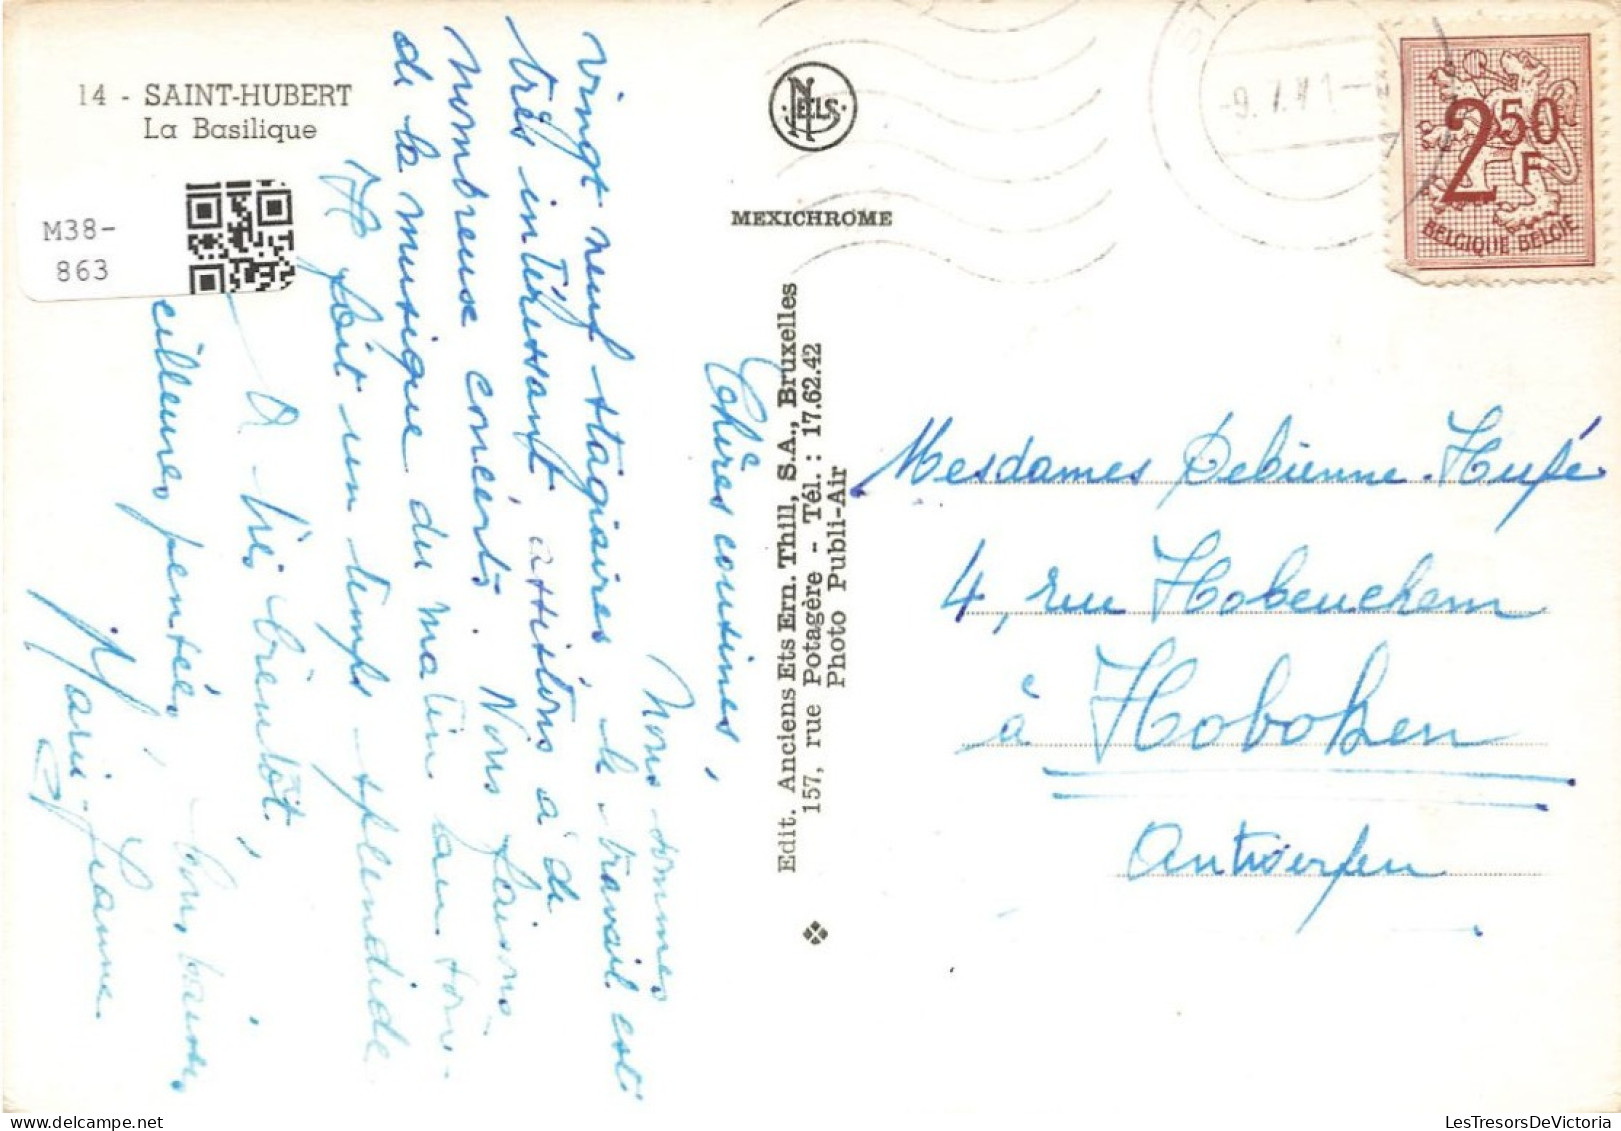 14 - SAINT-HUBERT
La Basilique
M38-
863
NELS
MEXICHROME
Edit. Anciens Ets Ern. Thill, S.A., Bruxelles
157, rue Potagère - Tél. : 17.62.42
Photo Publi-Air
2 50
F
BELGIQUE BELGIE
Chères cousines,
Nous sommes
vingt neuf stagiaires, le travail est
très intéressant, assistons à de
nombreux concerts. Nous faisons
de la musique du matin au soir.
Il fait un temps splendide.
A très bientôt,
bons baisers,
eilleures pensées,
Marie-Jeanne
Mesdames Debienne-
4, rue
à Hoboken
Antwerpen
LesTresorsDeVictoria.com